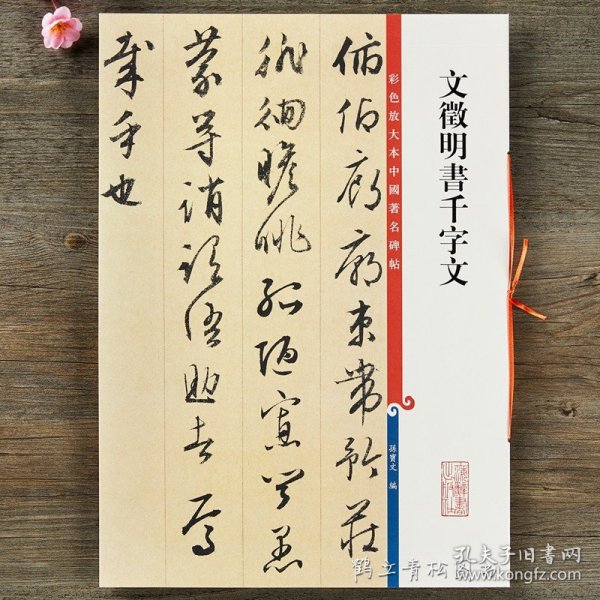 文徵明書千字文
彩色放大本中國著名碑帖
孫寶文 編
俯仰廊廟束帶矜莊
徘徊瞻眺孤陋寡聞愚
蒙等誚謂語助者焉
哉乎也
鹤立青松
孔夫子旧书网
www.kongfz.com